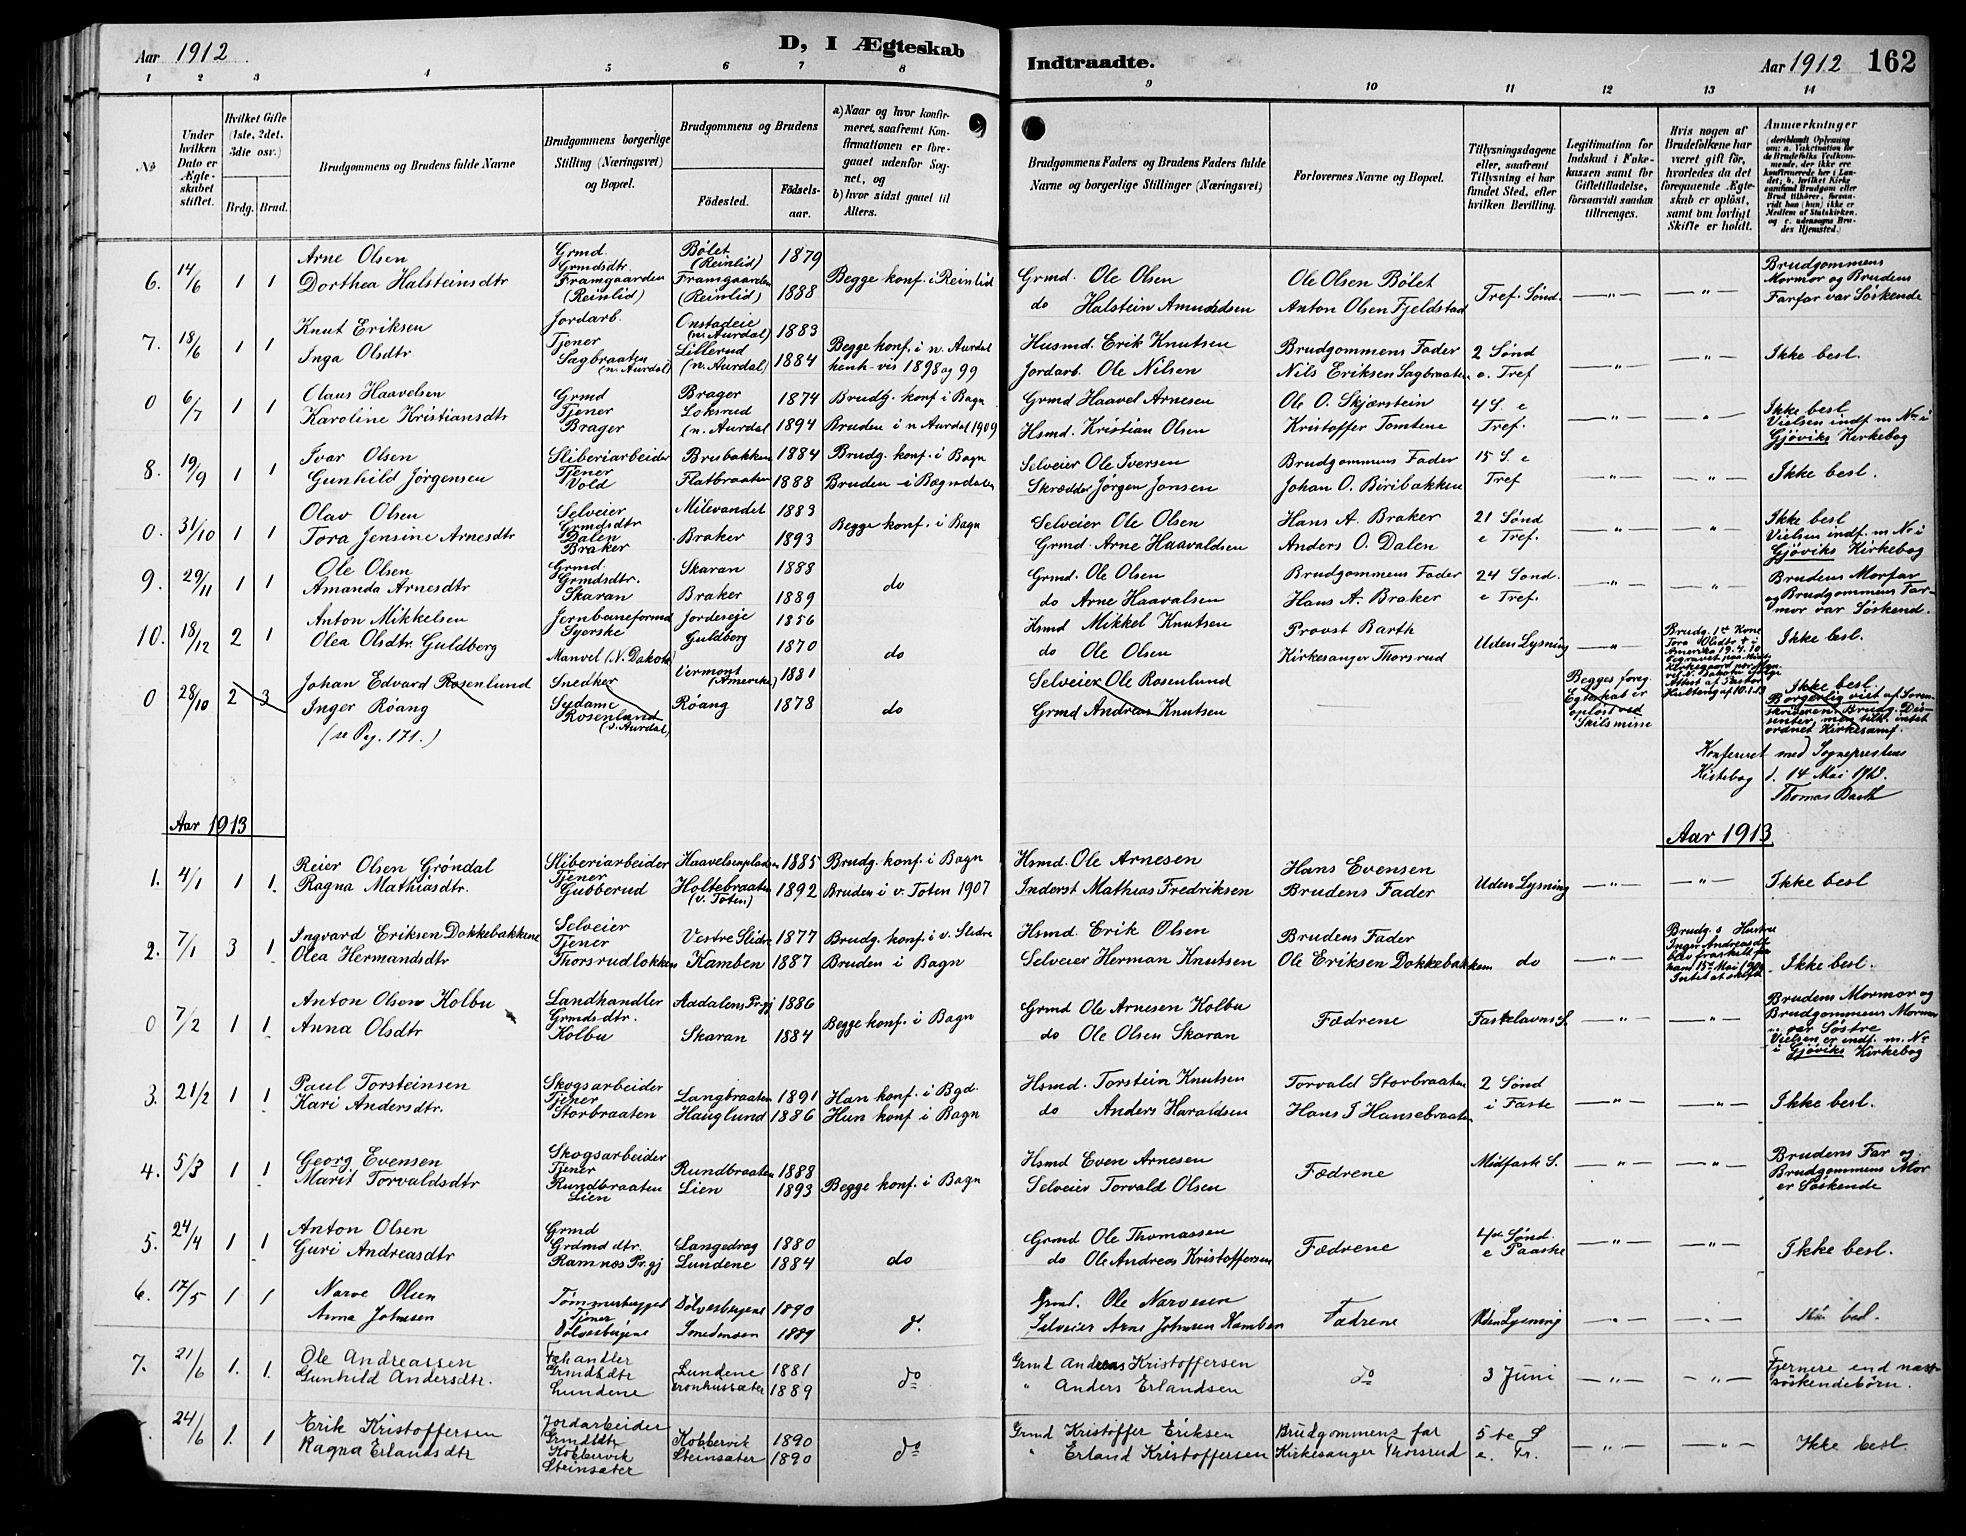 Aar 1912
D, I Ægteskab
Indtraadte.
Aar 1912
162
1 2 3 4 5 6 7 8 9 10 11 12 13 14
No
Under hvilken Dato er Ægteskabet stiftet.
Hvilket Gifte (1ste, 2det, 3die osv.)
Brdg. Brud.
Brudgommens og Brudens fulde Navne
Brudgommens borgerlige Stilling (Næringsvei) og Bopæl.
Brudgommens og Brudens
Fødested.
Fødselsaar.
a) Naar og hvor konfirmeret, saafremt Konfirmationen er foregaaet udenfor Sognet, og
b) hvor sidst gaaet til Alters.
Brudgommens Faders og Brudens Faders fulde Navne og borgerlige Stillinger (Næringsvei)
Forlovernes Navne og Bopæl.
Tillysningsdagene eller, saafremt Tillysning ei har fundet Sted, efter hvilken Bevilling.
Legitimation for Indskud i Enkekassen samt for Giftetilladelse, forsaavidt saadan tiltrænges.
Hvis nogen af Brudefolkene har været gift før, hvorledes da det foregaaende Ægteskab er opløst, samt om lovligt Skifte er holdt.
Anmærkninger
6. 14/6 1 1
Arne Olsen
Dorthea Halsteinsdtr
Grmd.
Grmdsdtr.
Framgaarden
(Reinlid)
Bølet (Reinlid) 1879
Framgaarden (Reinlid) 1888
Begge konf. i Reinlid
Grmd. Ole Olsen
do Halstein Amundsen
Ole Olsen Bølet
Anton Olsen Fjeldstad
Tref. Sønd.
—„— —„—
Brudgommens
Mormor og Brudens
Farfar var Söskende
7. 18/6 1 1
Knut Eriksen
Inga Olsdtr
Jordarb.
Tjener
Sagbraaten
(n. Aurdal)
Onstadeie (n. Aurdal) 1883
Lillerud (n. Aurdal) 1884
Begge konf. i n. Aurdal
henh-vis 1898 og 99
Husmd. Erik Knutsen
Jordarb. Ole Nilsen
Brudgommens Fader
Nils Eriksen Sagbraaten
2 Sönd
e. Tref
—„— —„—
Ikke besl.
0 6/7 1 1
Olaus Haavelsen
Karoline Kristiansdtr
Grmd
Tjener
Brager
Brager 1874
Loksrud (n. Aurdal 1894
Brudg. konf i Bagn
Bruden i n Aurdal 1909
Grmd Haavel Arnesen
Hsmd. Kristian Olsen
Ole O. Skjærstein
Kristoffer Tomtene
4 S. e
Tref.
—„— —„—
Ikke besl
Vielsen indf. m. No i
Gjöviks Kirkebog
8. 19/9 1 1
Ivar Olsen
Gunhild Jörgensen
Sliberiarbeider
Tjener
Vold
Brubakken 1884
Flatbraaten 1888
Brudg. konf. i Bagn
Bruden - i Bægndalen
Selveier Ole Iversen
Skrædder Jørgen Jonsen
Brudgommens Fader
Johan O. Biribakken
15 S. e
Tref
—„— —„—
Ikke besl.
0. 31/10 1 1
Olav Olsen
Tora Jensine Arnesdtr
Selveier
Grmdsdtr
Dalen
Braker
Milevandet 1883
Braker 1893
Begge konf. i Bagn
Selveier Ole Olsen
Grmd. Arne Haavaldsen
Hans A. Braker
Anders O. Dalen
21 Sönd
e Tref.
—„— —„—
Ikke besl
Vielsen indf. m No i
Gjöviks Kirkebog
9. 29/11 1 1
Ole Olsen
Amanda Arnesdtr
Grmd.
Grmdsdtr.
Skaran
Skaran 1888
Braker 1889
do
Grmd. Ole Olsen
do Arne Haavalsen
Brudgommens Fader
Hans A. Braker
24 Sond.
e Tref.
—„— —„—
Brudens Morfar
og Brudgommens Far-
mor var Söskend.
10. 18/12 2 1
Anton Mikkelsen
Olea Olsdtr. Guldberg
Jernbaneformd
Syerske
Manvel (N. Dakota)
Jordeseje 1856
Guldberg 1870
do
Hsmd Mikkel Knutsen
do Ole Olsen
Provst Barth
Kirkesanger Thorsrud
Uden Lysning
—„—
Brudg. 1te Kone
Tora Olsdtr + i
Amerika 19.4.10
Ikke besl.
0 28/10 2 3
Johan Edvard Rosenlund
Inger Röang
(se Pag. 171.)
Snedker
Sydame
Rosenlund
(v. Aurdal)
Vermont (Amerika) 1881
Röang 1878
do
Selveier Ole Rosenlund
Grmd Andreas Knutsen
Begges foreg.
Egteskab er
oplöst ved
Skilsmisse
Ikke besl.
Borgerlig viet af Soren-
skriveren. Brudg. Dis-
senter, men tilh. intet
ordnet Kirkesamf.
Konfereret med Sogneprestens
Kirkebog d. 14 Mai 1913.
Thomas Barth
Aar 1913
Aar 1913
1. 4/1 1 1.
Reier Olsen Gröndal
Ragna Mathiasdtr.
Sliberiarbeider
Tjener
Gubberud
Haavelsenpladsen 1885
Holtebraaten (v. Toten) 1892
Brudg. konf. i Bagn
Bruden i v. Toten 1907
Hsmd. Ole Arnesen
Inderst Mathias Fredriksen
Hans Evensen
Brudens Fader
Uden Lysning
—„— —„—
Ikke besl
2. 7/1 3 1
Ingvard Eriksen Dokkebakkene
Olea Hermandsdtr
Selveier
Tjener
Thorsrudlokken
Vestre Slidre 1877
Kamben 1887
Brudg. konf. i v. Slidre
Bruden i Bagn
Hsmd. Erik Olsen
Selveier Herman Knutsen
Brudens Fader
Ole Eriksen Dokkebakken
do
—„—
Brudg.s Hustru
Inger Andreasdtr
blev fraskilt fra
ham 15de Mai
Intet at skifte
Ikke besl.
0 7/2 1 1
Anton Olsen Kolbu
Anna Olsdtr
Landhandler
Grmdsdtr.
Kolbu
Aadalens Pr.gj 1886
Skaran 1884
Begge konf. i Bagn
Grmd Ole Arnesen Kolbu
do Ole Olsen Skaran
Fædrene
Fastelavns S.
—„— —„—
Brudens Mormor og
Brudgommens Mormor
var Søstre
Vielsen er indf. m. No
i Gjöviks Kirkebog
3. 21/2 1 1
Paul Torsteinsen
Kari Andersdtr.
Skogsarbeider
Tjener
Storbraaten
Langbraaten 1891
Hauglund 1886
Han konf. i Bgd.
Hun konf i Bagn
Hsmd. Torstein Knutsen
do Anders Haraldsen
Torvald Storbraaten
Hans I Hansebraaten
2 Sönd
i Faste
—„— —„—
Ikke besl.
4. 5/3 1 1
Georg Evensen
Marit Torvaldsdtr
Skogsarbeider
Tjener
Rundbraaten
Lien
Rundbraaten 1888
Lien 1893
Begge konf. i Bagn
Hsmd Even Arnesen
Selveier Torvald Olsen
Fædrene
Midfast S.
—„— —„—
Brudens Far og
Brudgommens Mor
er Söskende
5. 24/4 1 1
Anton Olsen
Guri Andreasdtr
Grmd
Grdmd dtr.
Ramnes Pr.gj
Langedrag 1880
Lundene 1884
do
Grmd Ole Thomassen
do Ole Andreas Kristoffersen
Fædrene
4de Sönd.
e Paaske
—„— —„—
Ikke besl.
6. 17/5 1 1
Narve Olsen
Anna Johnsen
Tømmerhugger
Tjener
Sölvesbergene
Sölvesbergene 1890
Smedmoen 1889
d.
Grmd. Ole Narvesen
Selveier Arne Johnsen Kamben
Fædrene
Uden Lysning
—„— —„—
Ikke besl.
7. 21/6 1. 1.
Ole Andreassen
Gunhild Andersdtr.
Fehandler
Grmdsdtr
Lundene
Lundene 1881
Tronhussæter 1889
do
Grmd Andreas Kristoffersen
„ Anders Erlandsen
do
3 Juni
—„— —„—
Fjernere end næst-
söskendebörn.
24/6 1. 1
Erik Kristoffersen
Ragna Erlandsdtr
Jordarbeider
Grmdsdtr
Kobbervik
Steinsæter
Kobbervik 1890
Steinsæter 1890
do
Grmd Kristoffer Eriksen
„ Erland Kristoffersen
Brudgommens far
Kirkesanger Thorsrud
5 te S
e. Tr.
—„— —„—
Ikke besl